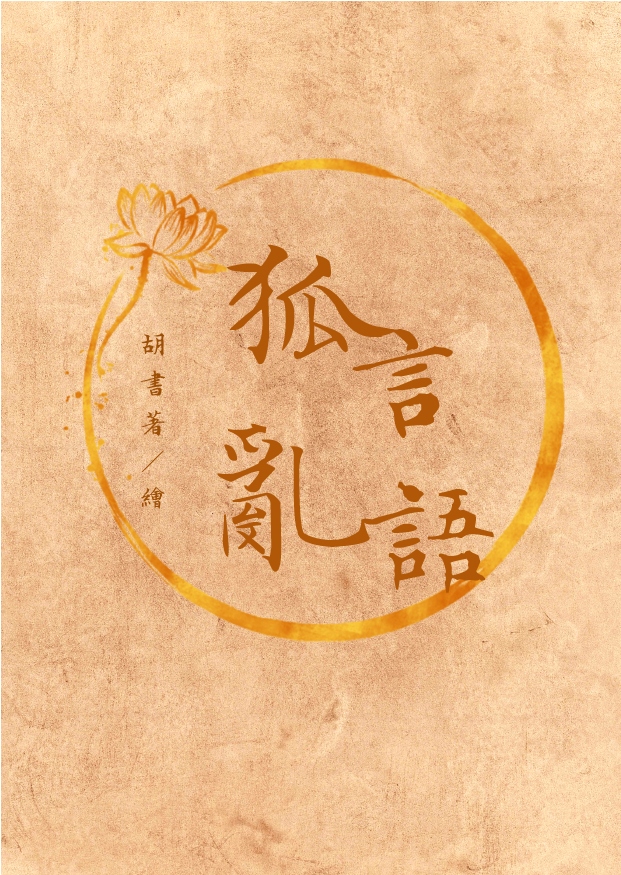 狐言
亂語
胡書著／繪